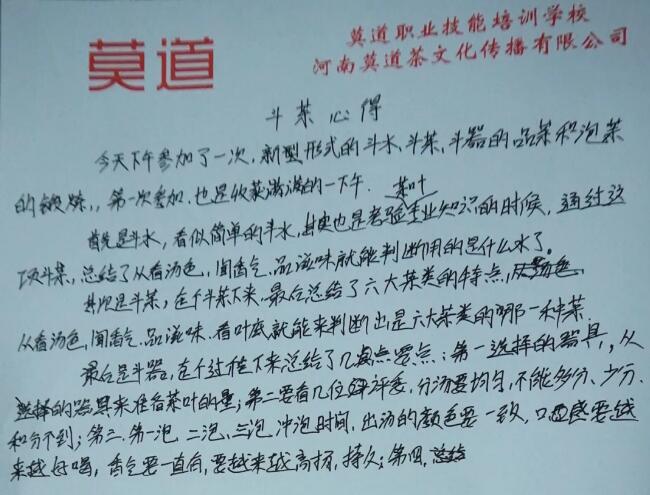 莫道
莫道职业技能培训学校
河南莫道茶文化传播有限公司
斗茶心得
今天下午参加了一次,新型形式的斗水、斗茶、斗器的品茶和泡茶
的锻炼,第一次参加,也是收获满满的一下午.
茶叶
首先是斗水,看似简单的斗水,其实也是考验专业知识的时候,通过这
项斗茶,总结了从看汤色、闻香气、品滋味就能判断用的是什么水了。
其次是斗茶,在个斗茶下来,最后总结了六大茶类的特点,从汤色
从看汤色,闻香气,品滋味、看叶底就能来判断出是六大茶类的哪一种茶.
最后是斗器,在个过程下来总结了几点要点:第一选择的器具,从
选择的器具来准备茶叶的量;第二要看几位评委,分汤要均匀,不能多分、少分、
和分不到;第三、第一泡、二泡、三泡、冲泡时间,出汤的颜色要一致,口感要越
来越好喝,香气要一直有,要越来越高扬,持久;第四,总结